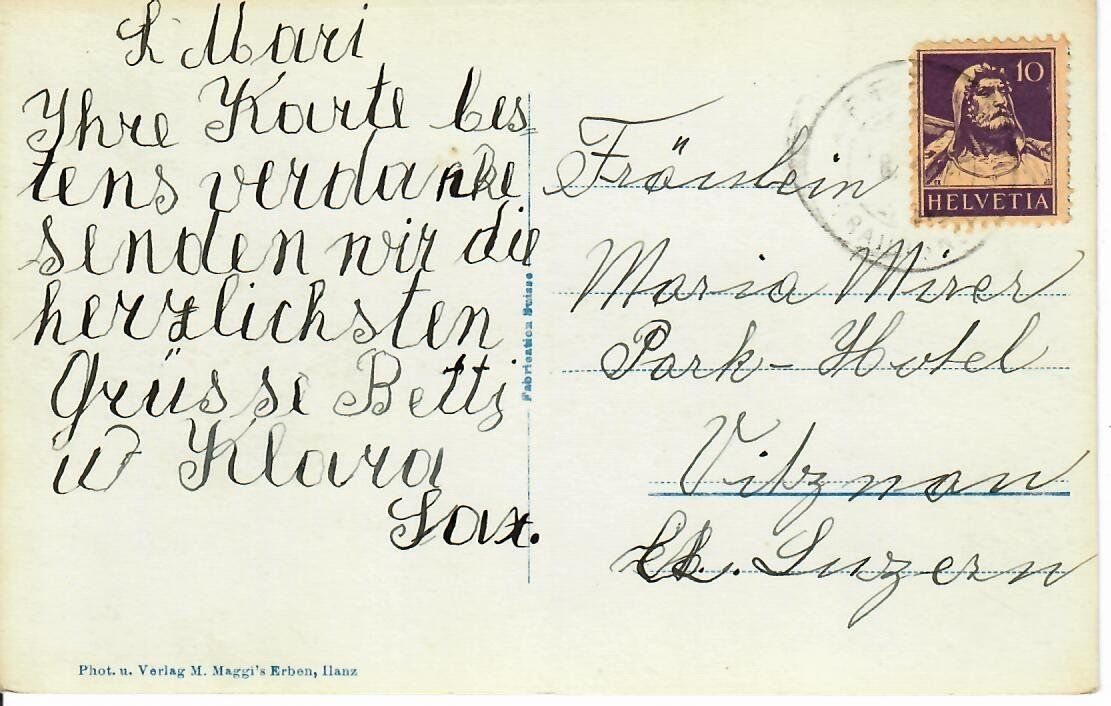 L Mari
Ihre Karte bes-
tens verdanke
senden wir die
herzlichsten
Grüsse Betti
u Klara
Sax.
Fabrication Suisse
Fräulein
Maria Mirer
Park-Hotel
Vitznau
Kt. Luzern
10
HELVETIA
Phot. u. Verlag M. Maggi's Erben, Ilanz